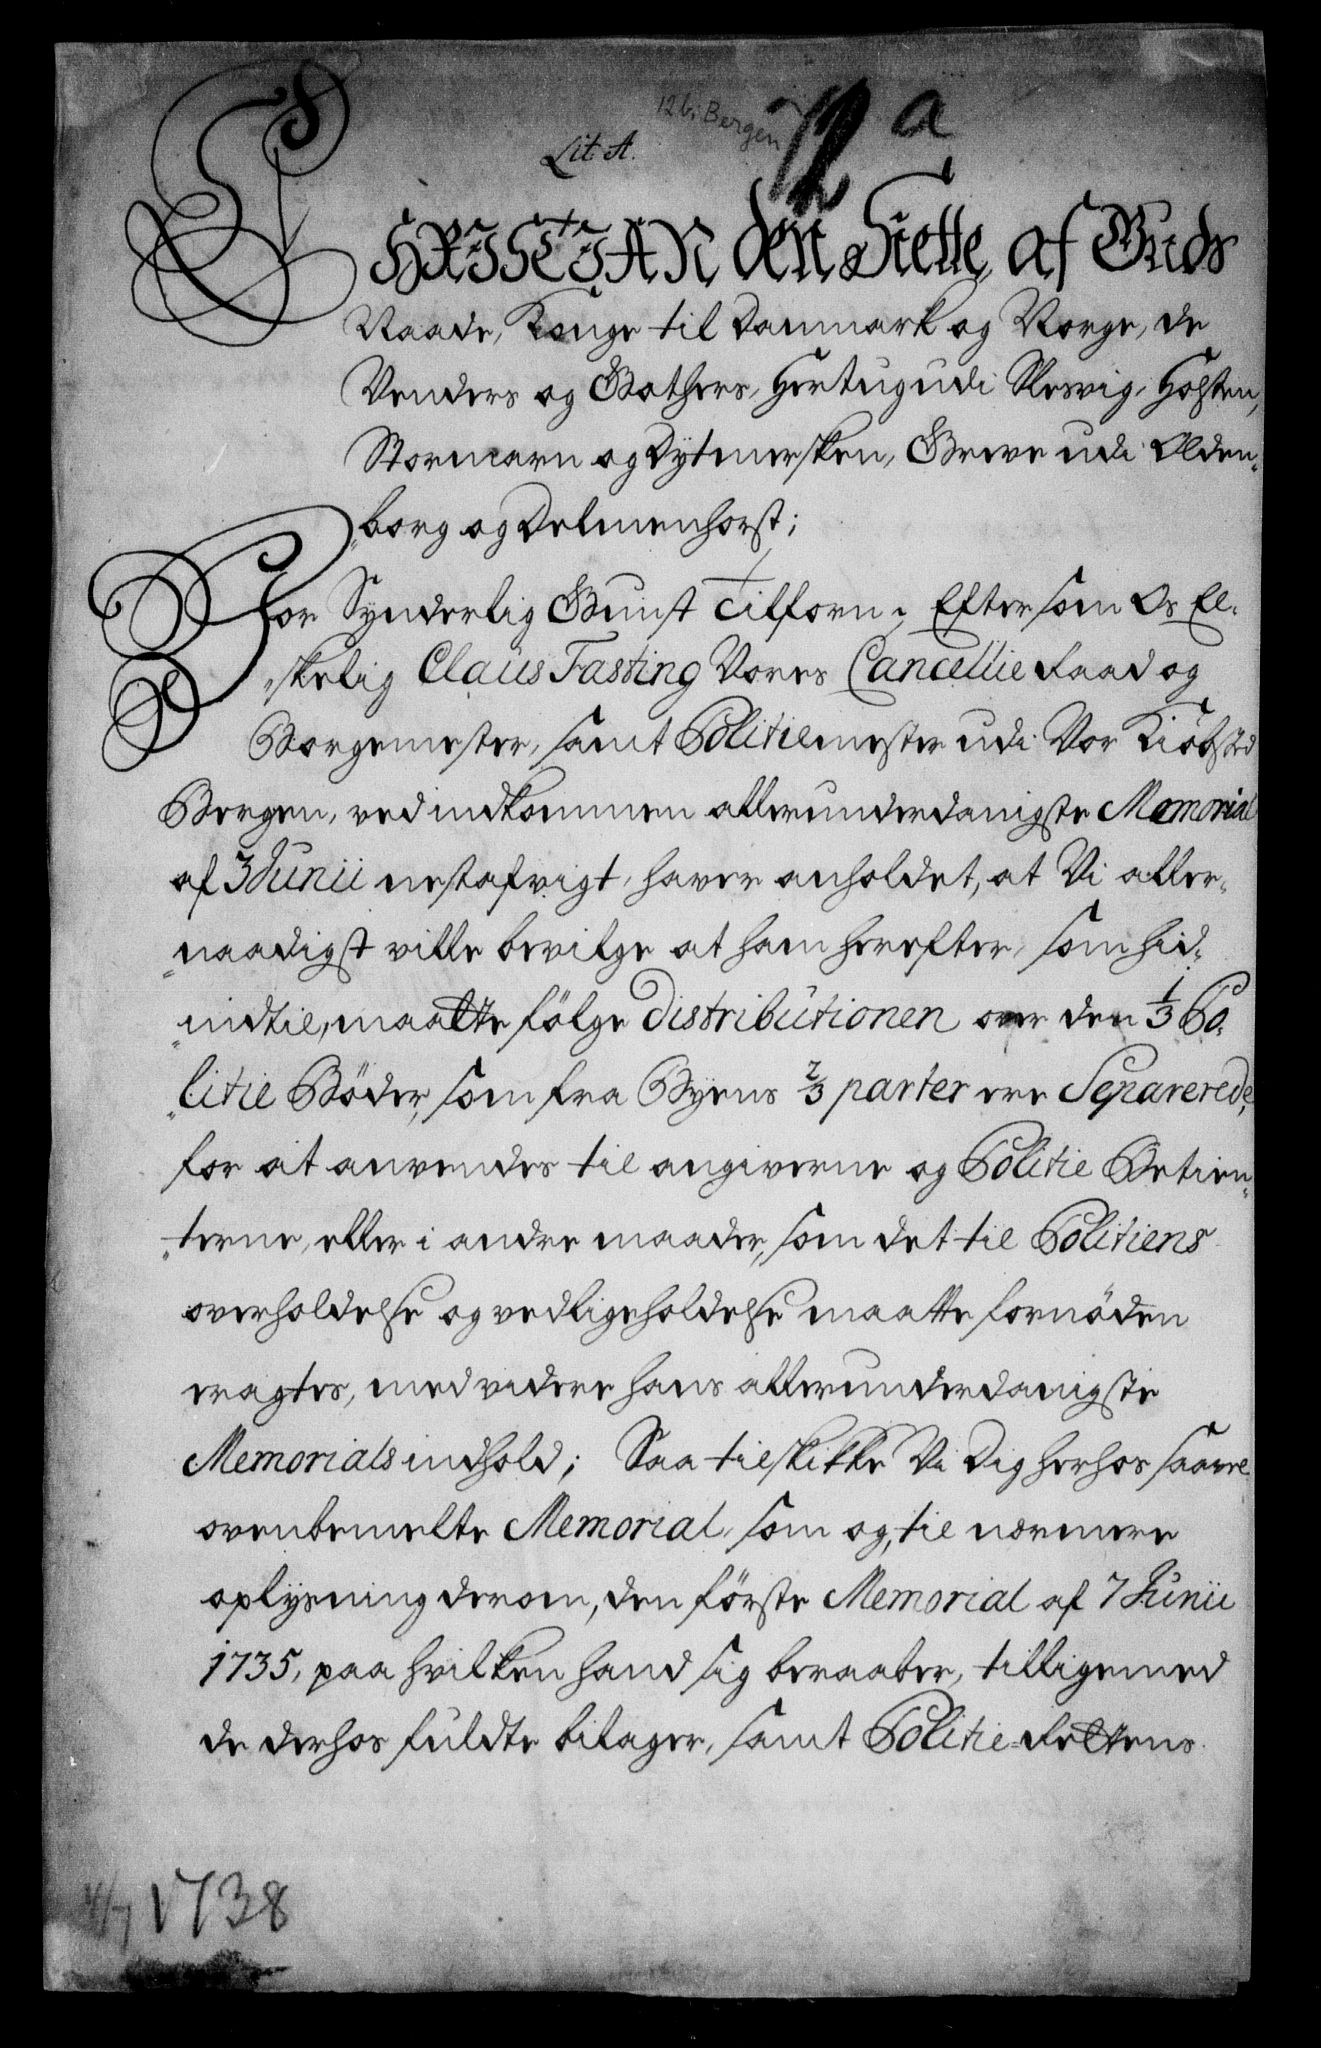 12 b, Bergen
12 a
Lit A.
CHRISTIAN den Siette, af Guds
Naade, Konge til Danmark og Norge, de
Venders og Gothers, Hertug udi Slesvig, Holsten,
Stormarn og Dytmersken, Greve udi Olden-
borg og Delmenhorst;
Vor Synderlig Gunst Tilforn; Eftersom Os El-
skelig Claus Fasting Vores Cancellie Raad og
Borgemester, samt Politiemester udi Vor Kiöbsted
Bergen, ved indkommen allerunderdanigste Memorial
af 3 Junii nestafvigt, haver anholdet, at Vi aller-
naadigst ville bevilge at ham herefter, som hid-
indtil, maatte fölge Distributionen over den 1/3 Po-
litie Böder, som fra Byens 2/3 parter ere Separerede,
for at anvendes til angiverne og Politie Betien-
terne, eller i andre maader, som det til Politiens
overholdelse og vedligeholdelse maatte fornöden
eragtes, med videre hans allerunderdanigste
Memorials indhold; Saa tilskikke Vi Dig herhos saavel
ovenbemelte Memorial, som og, til nærmere
oplysning derom, den förste Memorial af 7 Junii
1735, paa hvilken hand sig beraaber, tilligemed
de derhos fuldte bilager, samt Politie-Rettens
4/7 1738